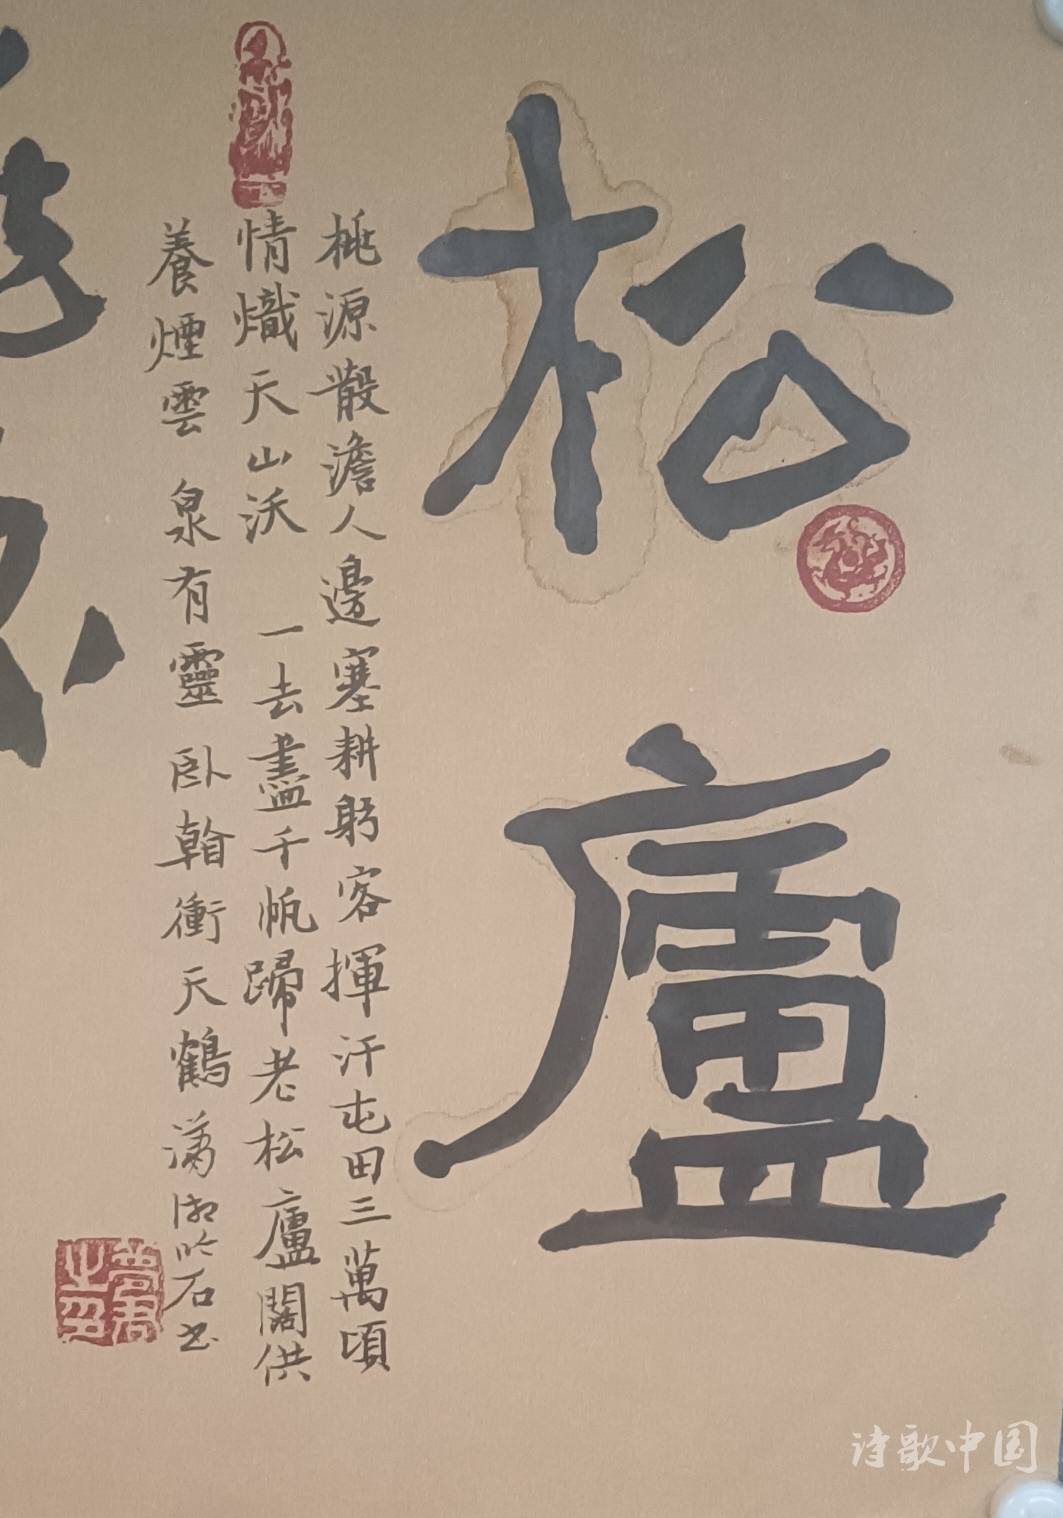 松廬
桃源散澹人邊塞耕躬客揮汗屯田三萬頃
情熾天山沃 一去盡千帆歸老松廬闊供
養煙雲泉有靈卧翰衝天鶴瀟湘吟石书
诗歌中国